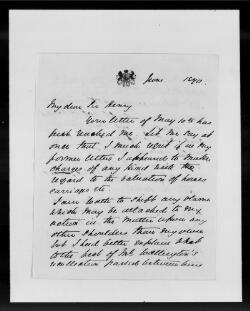 June 1890.
My dear Sir Henry
Your letter of May 10th has
reached me. Let me say at
once that I much regret if in my
former letter I appeared to make
charges of any kind with
regard to the valuation of horses
carriages etc.
I am loath to shift any blame
which may be attached to my
action in the matter upon any
other shoulders than my own
but I had better explain what
to the best of Mr Wellington's
recollection passed between